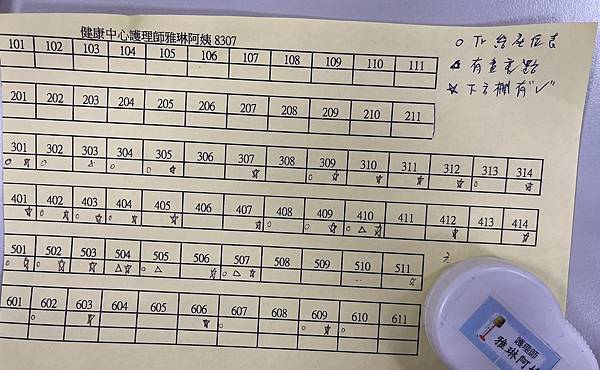 健康中心護理師雅琳阿姨 8307
101 102 103 104 105 106 107 108 109 110 111
201 202 203 204 205 206 207 208 209 210 211
301 302 303 304 305 306 307 308 309 310 311 312 313 314
401 402 403 404 405 406 407 408 409 410 411 412 413 414
501 502 503 504 505 506 507 508 509 510 511
601 602 603 604 605 606 607 608 609 610 611
○ Tr 給座位表
△ 有畫重點
☆ 下方欄有"✓"
護理師
雅琳阿姨